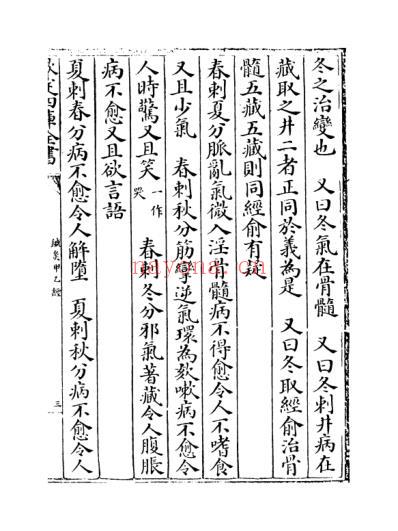 冬之治變也　又曰冬氣在骨髓　又曰冬刺井病在
藏取之井二者正同於義為是　又曰冬取經俞治骨
髓五藏五藏則同經俞有疑
春刺夏分脈亂氣微入淫骨髓病不得愈令人不嗜食
又且少氣　春刺秋分筋攣逆氣環為欬嗽病不愈令
人時驚又且笑一作哭　春刺冬分邪氣著藏令人腹脹
病不愈又且欲言語
夏刺春分病不愈令人解墮　夏刺秋分病不愈令人
欽定四庫全書
鍼灸甲乙經
三
nayona.cn